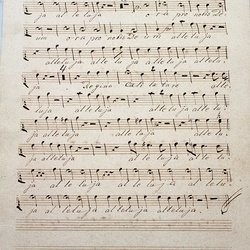 ja al le luja o ra pro nobis de
um o ra pro nobis De um alleluja
alleluja alle lu ja alleluja alle lu
ja Regina Cœli læ tare alle
luja alleluja alleluja alle
luja alleluja alleluja alle lu
ja alleluja al le luja allelu
ja alleluja al le lu ja al lelu
ja al leluja alleluja alleluja.